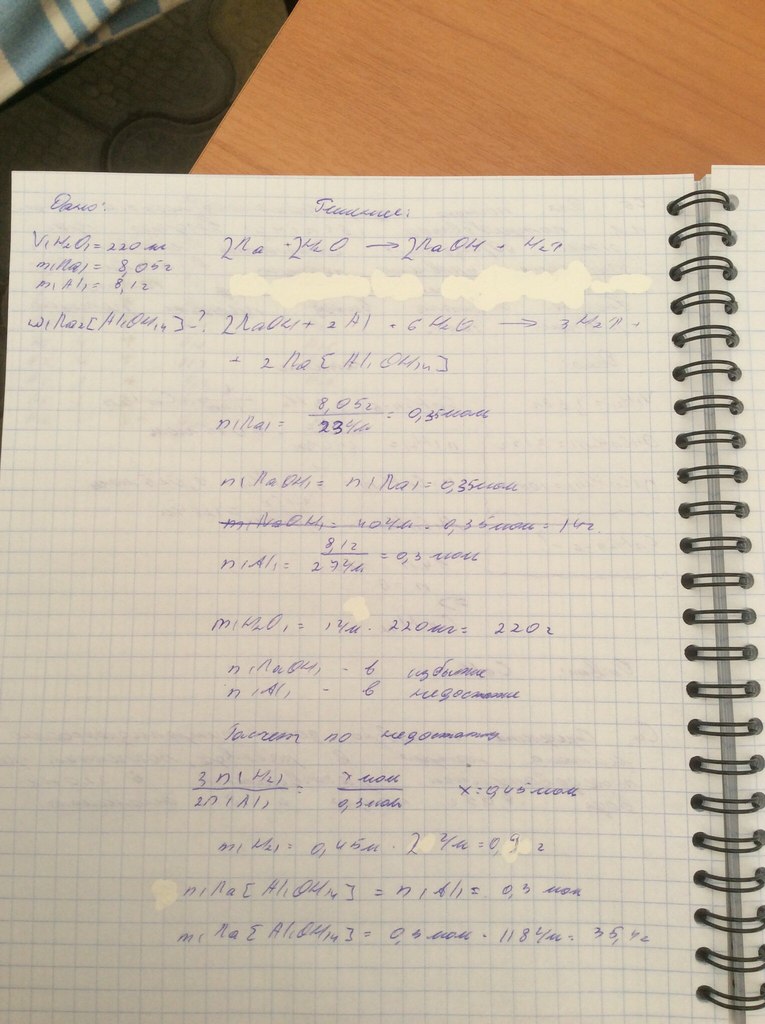 Дано: Решение:
V(H2O)=220 мл 2Na + 2H2O → 2NaOH + H2↑
m(Na) = 8,05г
m(Al) = 8,1г
ω(Na[Al(OH)4]-? 2NaOH + 2Al + 6H2O → 3H2↑ +
+ 2Na[Al(OH)4]
n(Na) = 8,05г / 23г/м = 0,35моль
n(NaOH) = n(Na) = 0,35моль
m(NaOH) = 40г/м · 0,35моль = 14г
n(Al) = 8,1г / 27г/м = 0,3 моль
m(H2O) = 1г/м · 220мл = 220г
n(NaOH) - в избытке
n(Al) - в недостатке
Расчет по недостатку
3n(H2) / 2n(Al) = x моль / 0,3моль x=0,45моль
m(H2) = 0,45м · 2г/м = 0,9 г
n(Na[Al(OH)4] = n(Al) = 0,3 моль
m(Na[Al(OH)4] = 0,3моль · 118г/м = 35,4г